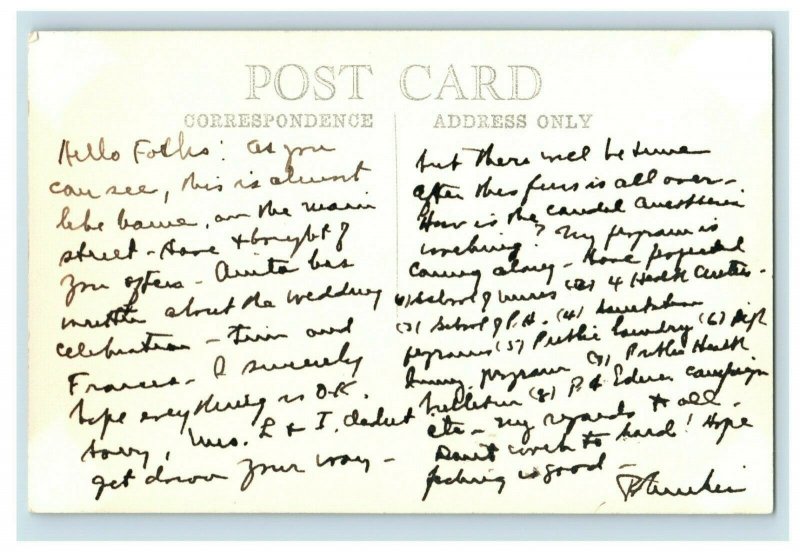 POST CARD
CORRESPONDENCE
ADDRESS ONLY
Hello Folks: as you
can see, this is almost
like home, on the main
street - have thought of
you often - Anita has
written about the wedding
celebration - Tim and
Frances - I sincerely
hope everything is O.K.
Sorry, Mrs. L & I, didnt
get down your way -
but there will be time
after this fuss is all over -
How is the caudal anesthesia
working? My program is
coming along - have projected
School of nurses (2) 4 Health Centers -
(3) School of P.H. (4) Sanitation
programs (5) Public laundry (6) High
program (7) Public Health
bulletin (8) P.H. Educ. campaign
etc - My regards to all -
Dont work to hard! Hope
fishing is good -